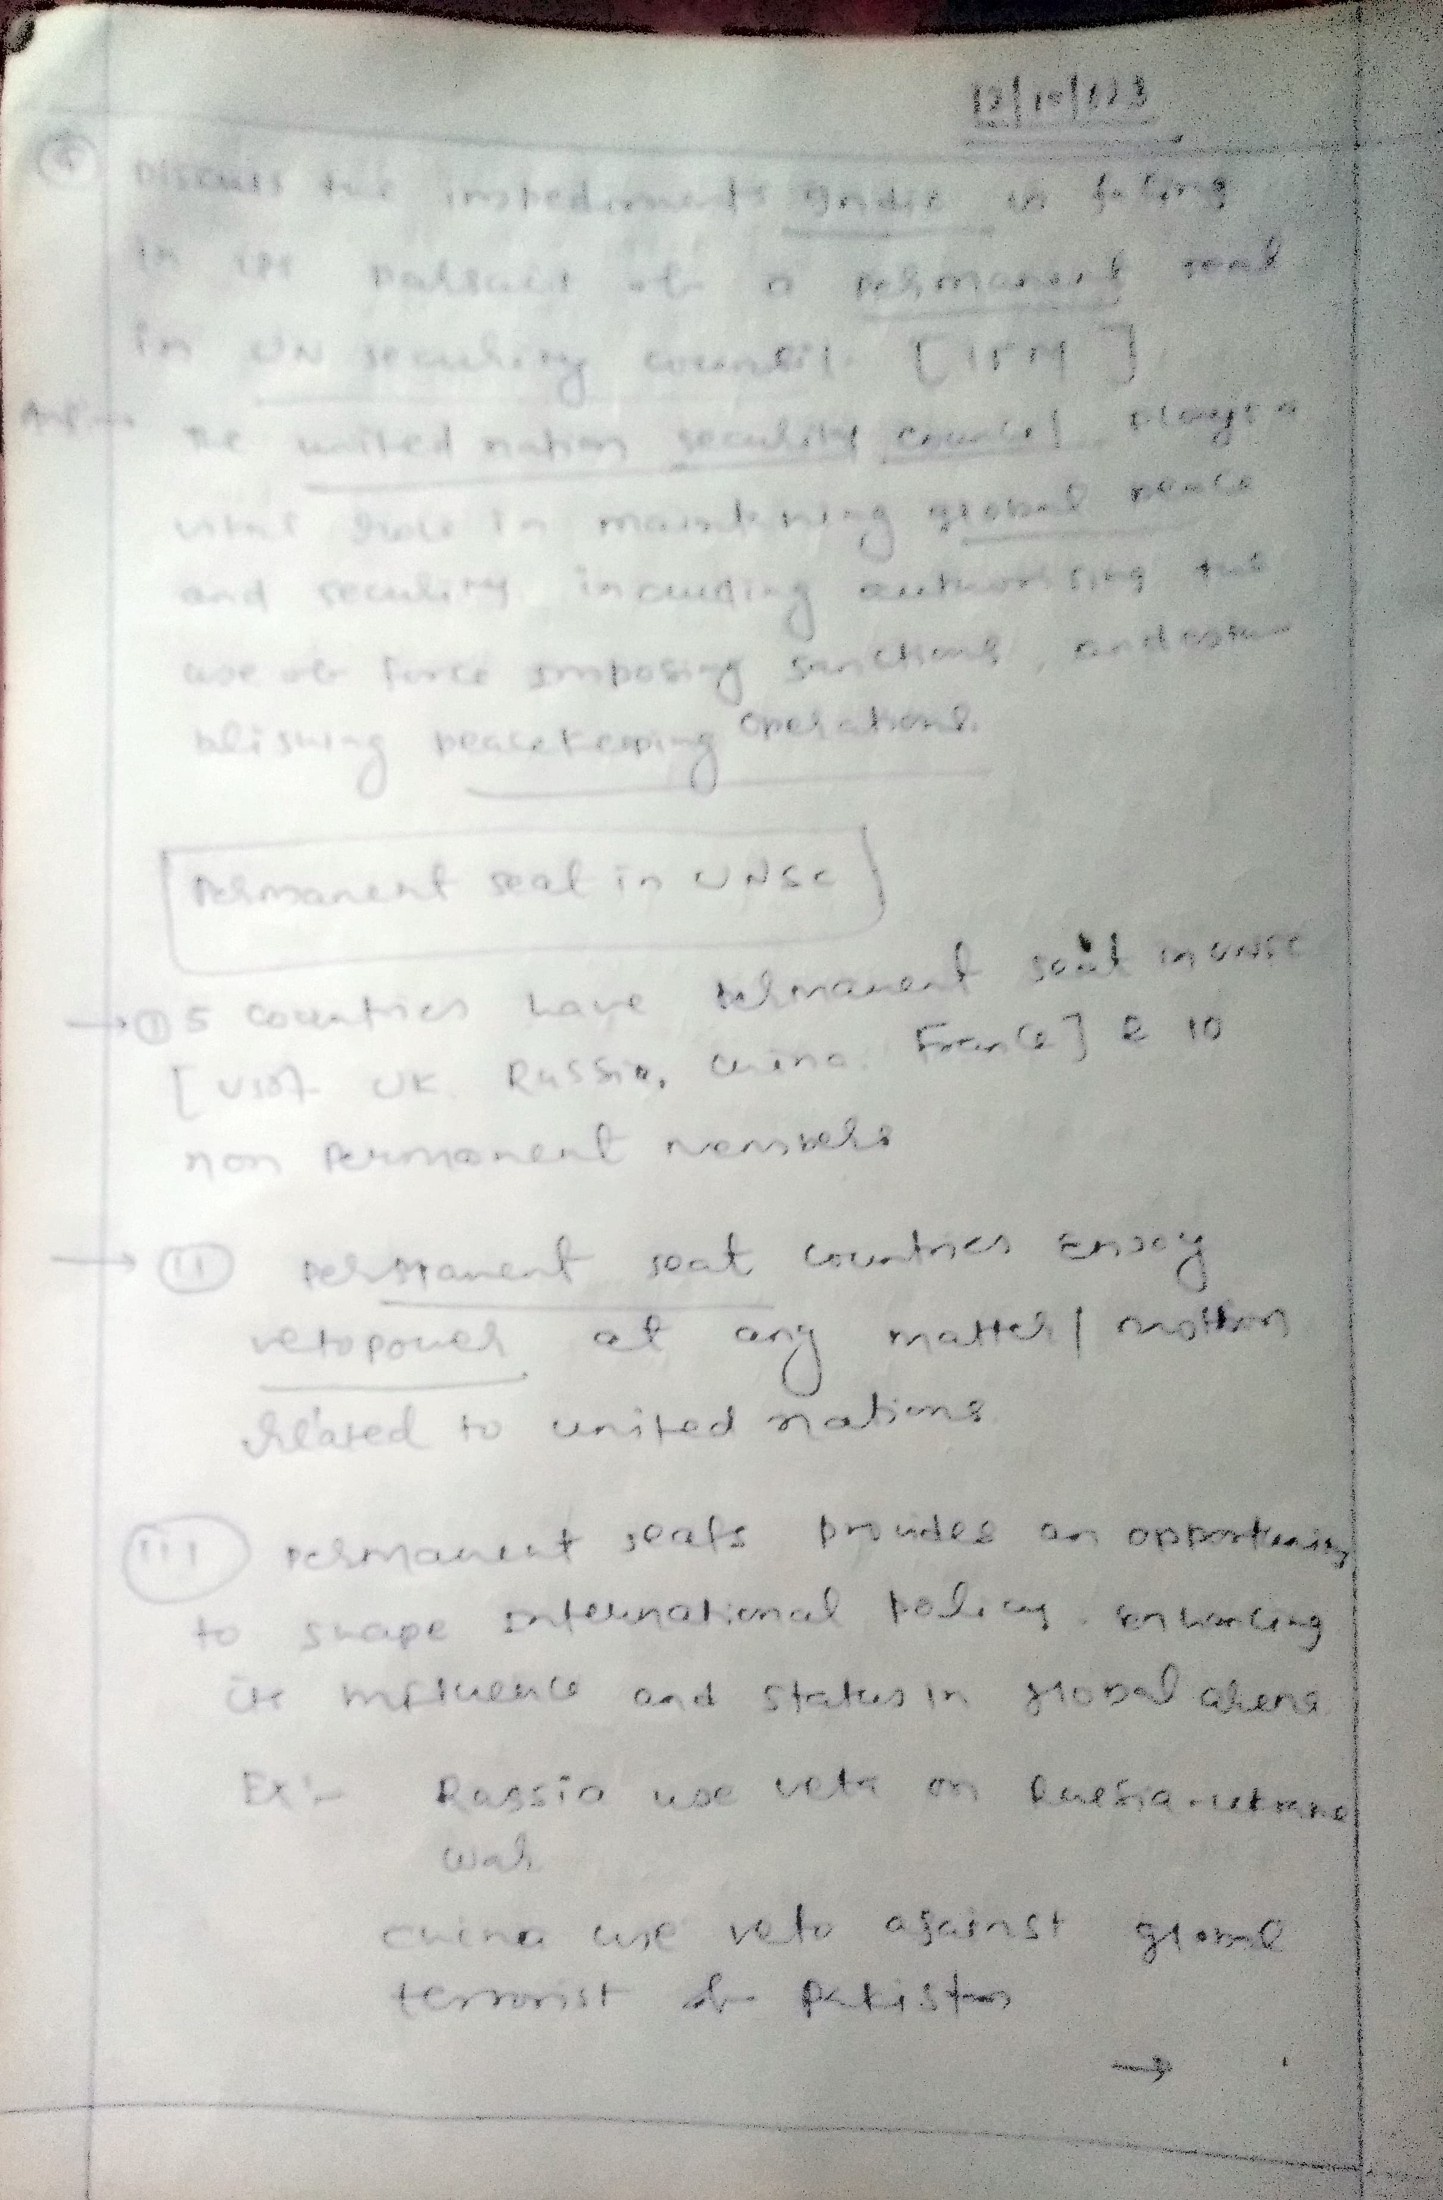 12/10/123
Discuss the impediments India is facing
in its pursuit of a permanent seat
in UN security council. [15M]
Ans:-
The united nation security council plays a
vital role in maintaining global peace
and security including authorising the
use of force imposing sanctions, and esta-
blishing peacekeeping operations.
Permanent seat in UNSC
→ (I) 5 countries have permanent seat in UNSC
[USA UK. Russia, China. France] & 10
non permanent members
→ (II) Permanent seat countries enjoy
veto power at any matter / motion
related to united nations.
(III) Permanent seats provides an opportunity
to shape international policy. enhancing
its influence and status in global arena
Ex:- Russia use veto on Russia-ukrane
war.
China use veto against global
terrorist of Pakistan
→